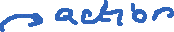 → action